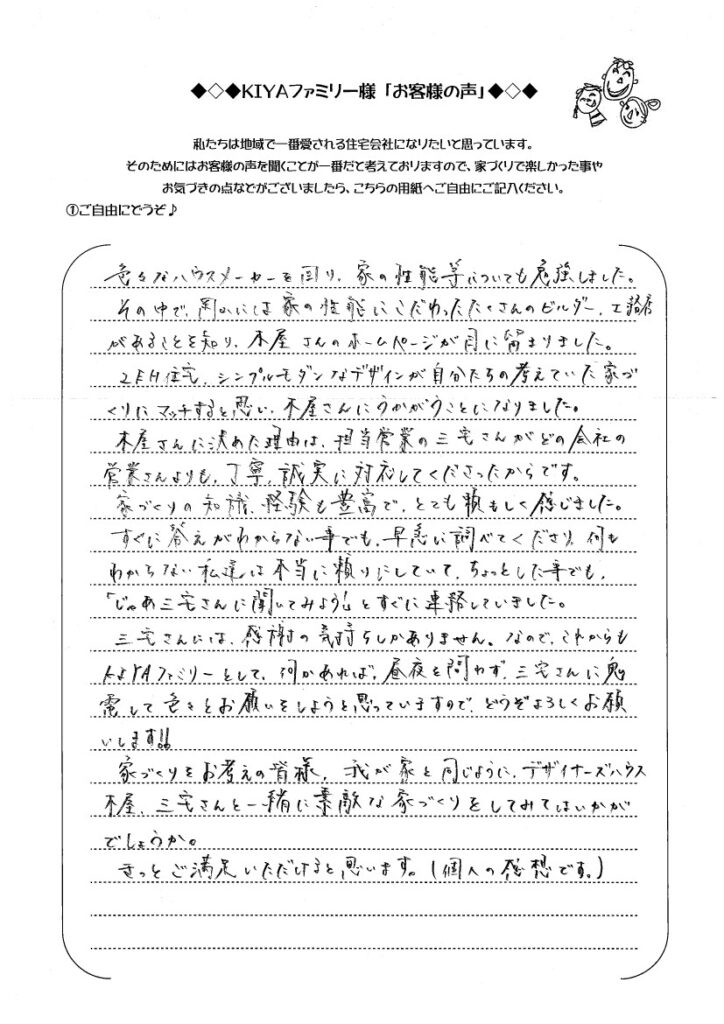 ◆◇◆KIYAファミリー様「お客様の声」◆◇◆
私たちは地域で一番愛される住宅会社になりたいと思っています。
そのためにはお客様の声を聞くことが一番だと考えておりますので、家づくりで楽しかった事や
お気づきの点などがございましたら、こちらの用紙へご自由にご記入ください。
①ご自由にどうぞ♪
色々なハウスメーカーを回り、家の性能等についても勉強しました。
その中で、岡山には家の性能にこだわったたくさんのビルダー、工務店
があることを知り、木屋さんのホームページが目に留まりました。
ZEH住宅、シンプルモダンなデザインが自分たちの考えていた家づ
くりにマッチすると思い、木屋さんにうかがうことになりました。
木屋さんに決めた理由は、担当営業の三宅さんがどの会社の
営業さんよりも、丁寧、誠実に対応してくださったからです。
家づくりの知識、経験も豊富で、とても頼もしく感じました。
すぐに答えがわからない事でも、早急に調べてくださり、何も
わからない私達は本当に頼りにしていて、ちょっとした事でも、
「じゃあ三宅さんに聞いてみよう!」とすぐに連絡していました。
三宅さんには、感謝の気持ちしかありません。なので、これからも
KIYAファミリーとして、何かあれば、昼夜を問わず、三宅さんに鬼
電して色々とお願いをしようと思っていますので、どうぞよろしくお願
いします!!
家づくりをお考えの皆様、我が家と同じように、デザイナーズハウス
木屋、三宅さんと一緒に素敵な家づくりをしてみてはいかが
でしょうか。
きっとご満足いただけると思います。(個人の感想です。)